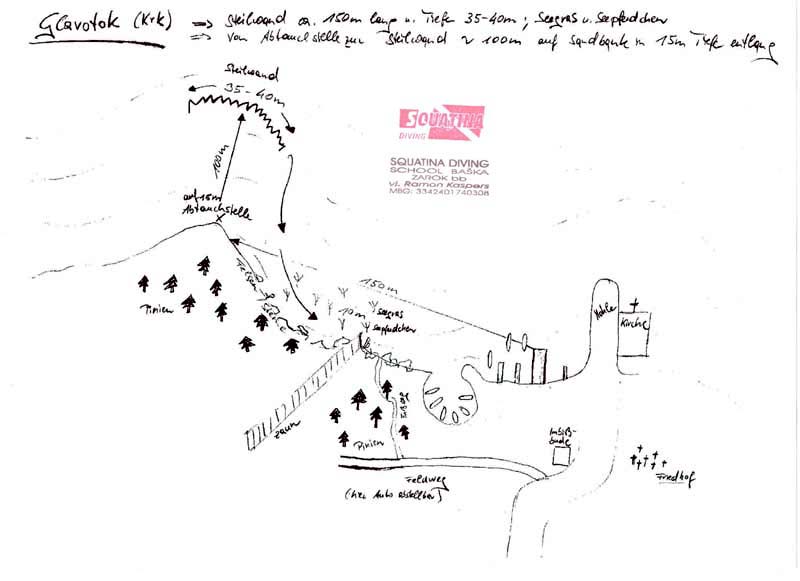 Glavotok (Krk) => Steilwand ca. 150m lang u. Tiefe 35-40m; Seegras u. Seepferdchen
=> Von Abtauchstelle zur Steilwand ~ 100m auf Sandbank in 15m Tiefe entlang
Steilwand
35-40m
SQUATINA
DIVING
SQUATINA DIVING
SCHOOL BAŠKA
ZAROK bb
vl. Ramon Kaspers
MBG: 3342401740308
100m
auf 15m
Abtauchstelle
150m
Felsen
10m
Seegras
Seepferdchen
Pinien
Mole
Kirche
Zaun
Pinien
Imbiß-
bude
Feldweg
(hier Auto abstellbar)
Friedhof